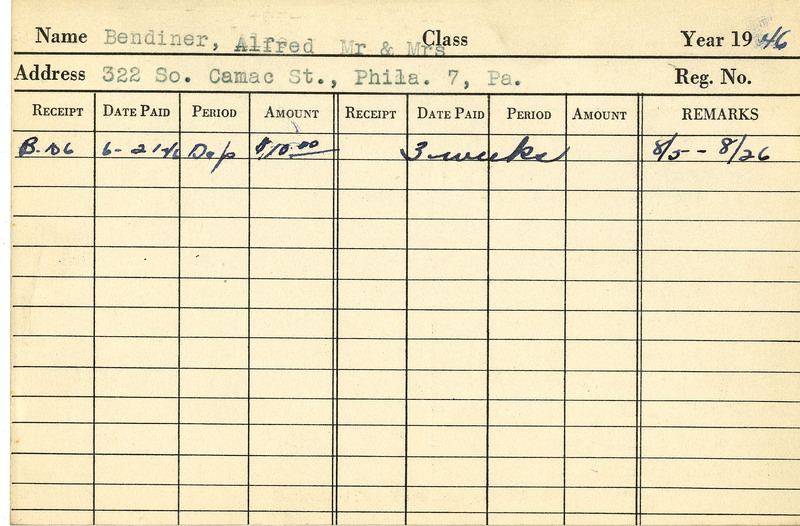 Name Bendiner, Alfred Mr & Mrs Class Year 1946
Address 322 So. Camac St., Phila. 7, Pa. Reg. No.
RECEIPT DATE PAID PERIOD AMOUNT RECEIPT DATE PAID PERIOD AMOUNT REMARKS
6-21-46 Dep $10.00 3 weeks 8/5 - 8/26